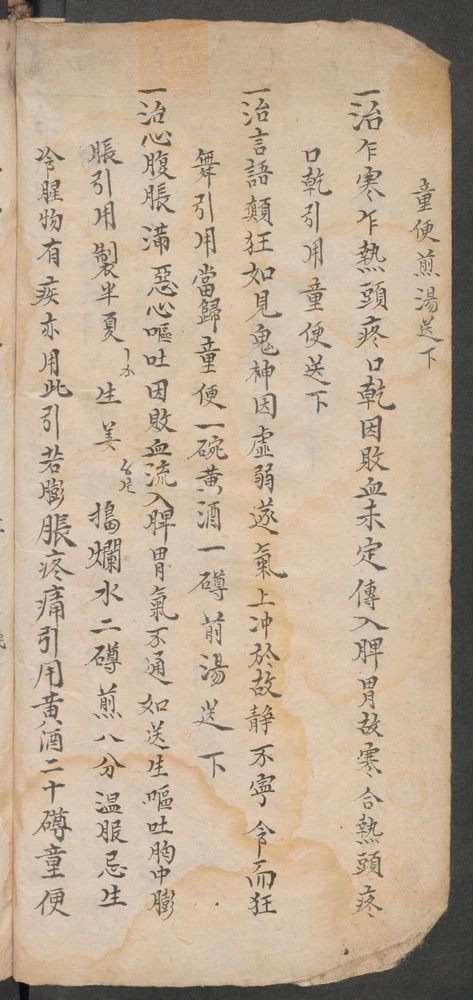 童便煎湯送下
一治乍寒乍熱頭疼口乾因敗血未定傳入脾胃故寒合熱頭疼
口乾引用童便送下
一治言語顛狂如見鬼神因虛弱遂氣上冲於故静不寧令而狂
舞引用當歸童便一碗黃酒一罇前湯送下
一治心腹脹滿惡心嘔吐因敗血流入脾胃氣不通如送生嘔吐胸中膨
脹引用製半夏 生姜 搗爛水二罇煎八分温服忌生
冷腥物有疾亦用此引若膨脹疼痛引用黃酒二十罇童便